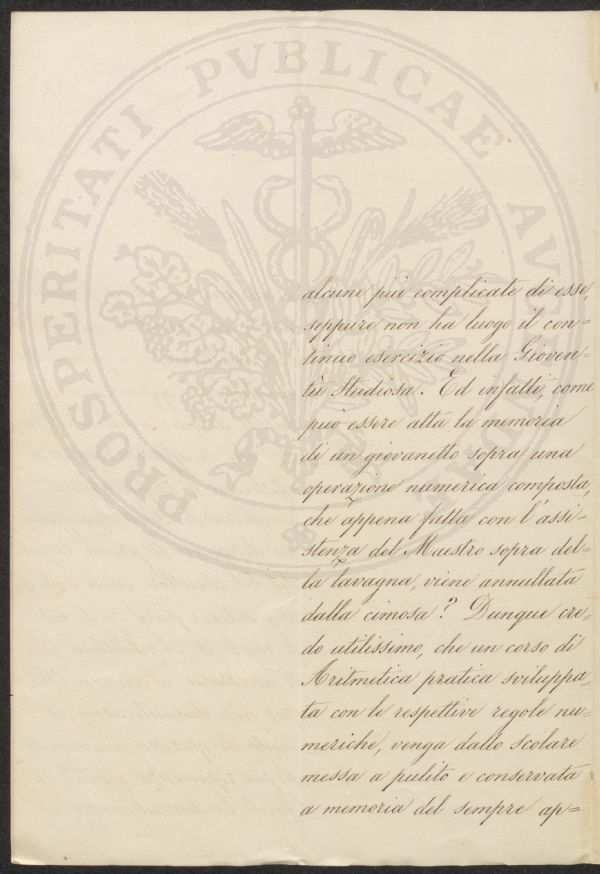 PROSPERITATI PVBLICAE AV
alcune più complicate di esse,
seppure non ha luogo il con=
tinuo esercizio nella Gioven=
tù Studiosa. Ed infatti, come
può essere atta la memoria
di un giovanetto sopra una
operazione numerica composta,
che appena fatta con l'assi=
stenza del Maestro sopra del=
la lavagna, viene annullata
dalla cimosa? Dunque cre=
do utilissimo, che un corso di
Aritmetica pratica sviluppa=
ta con le respettive regole nu=
meriche, venga dallo scolare
messa a pulito e conservata
a memoria del sempre ap=